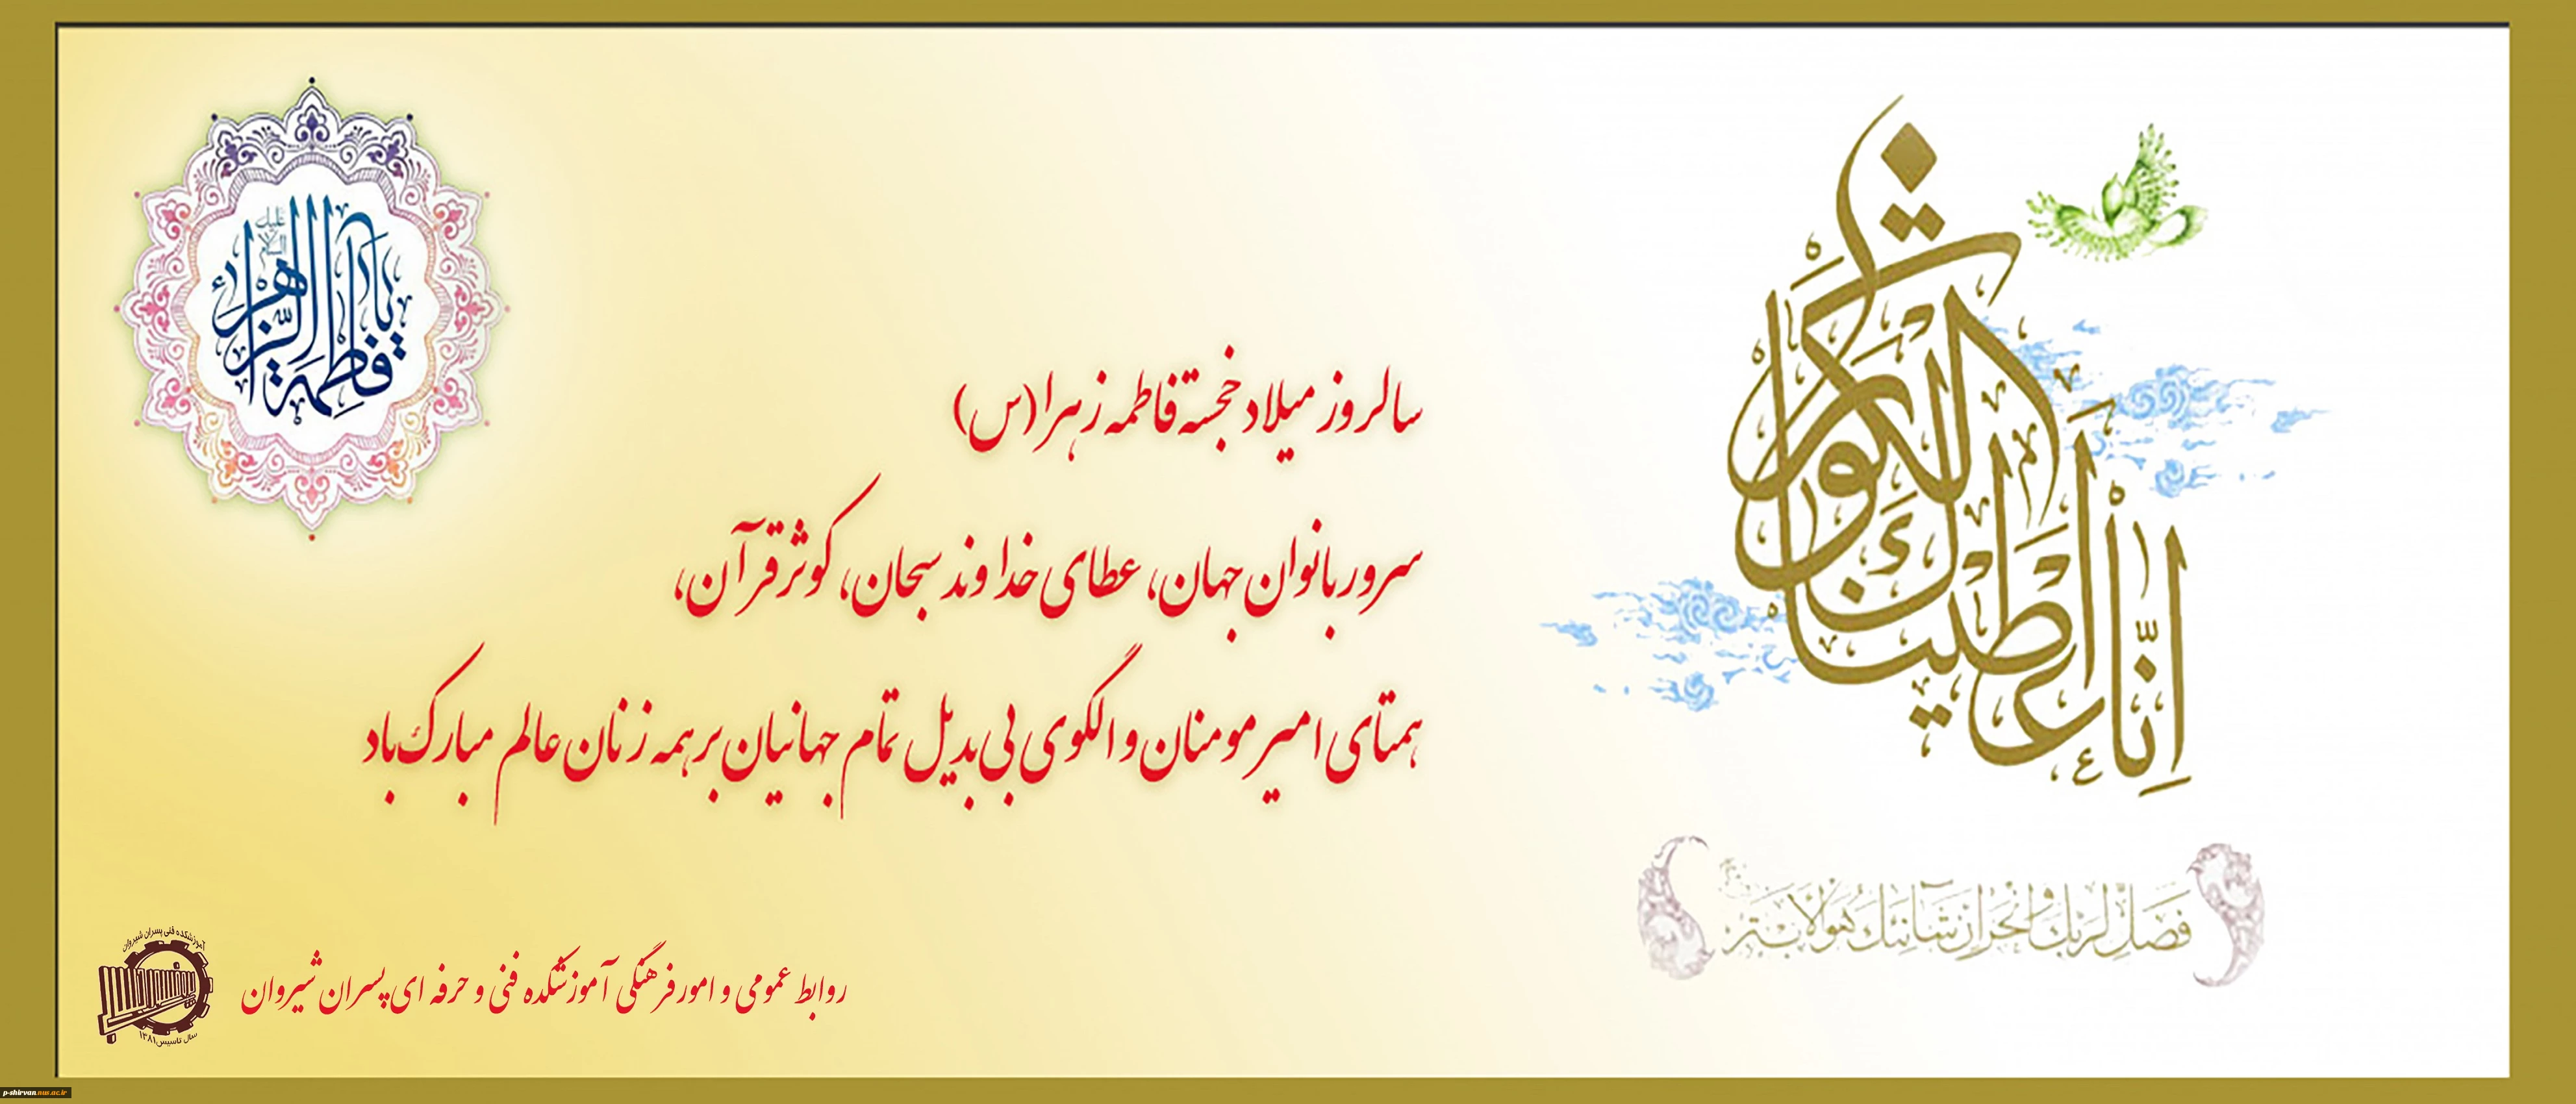 إِنَّا أَعْطَيْنَاكَ الْكَوْثَرَ
فَصَلِّ لِرَبِّكَ وَانْحَرْ إِنَّ شَانِئَكَ هُوَ الْأَبْتَرُ
یا فاطمة الزهراء
علیها السلام
سالروز میلاد خجسته فاطمه زهرا (س)
سرور بانوان جهان، عطای خداوند سبحان، کوثر قرآن،
همتای امیر مومنان و الگوی بی بدیل تمام جهانیان بر همه زنان عالم مبارک باد
روابط عمومی و امور فرهنگی آموزشکده فنی و حرفه ای پسران شیروان
آموزشکده فنی پسران شیروان
سال تاسیس ۱۳۸۱
p-shirvan.nus.ac.ir